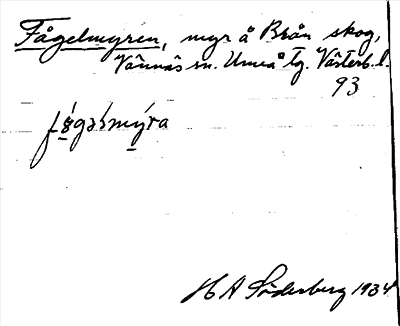 Fågelmyren, myr å Brån skog,
Vännäs sn. Umeå tg. Västerb. l.
93
fø̱gəlmy̱ra
H A Söderberg 1934